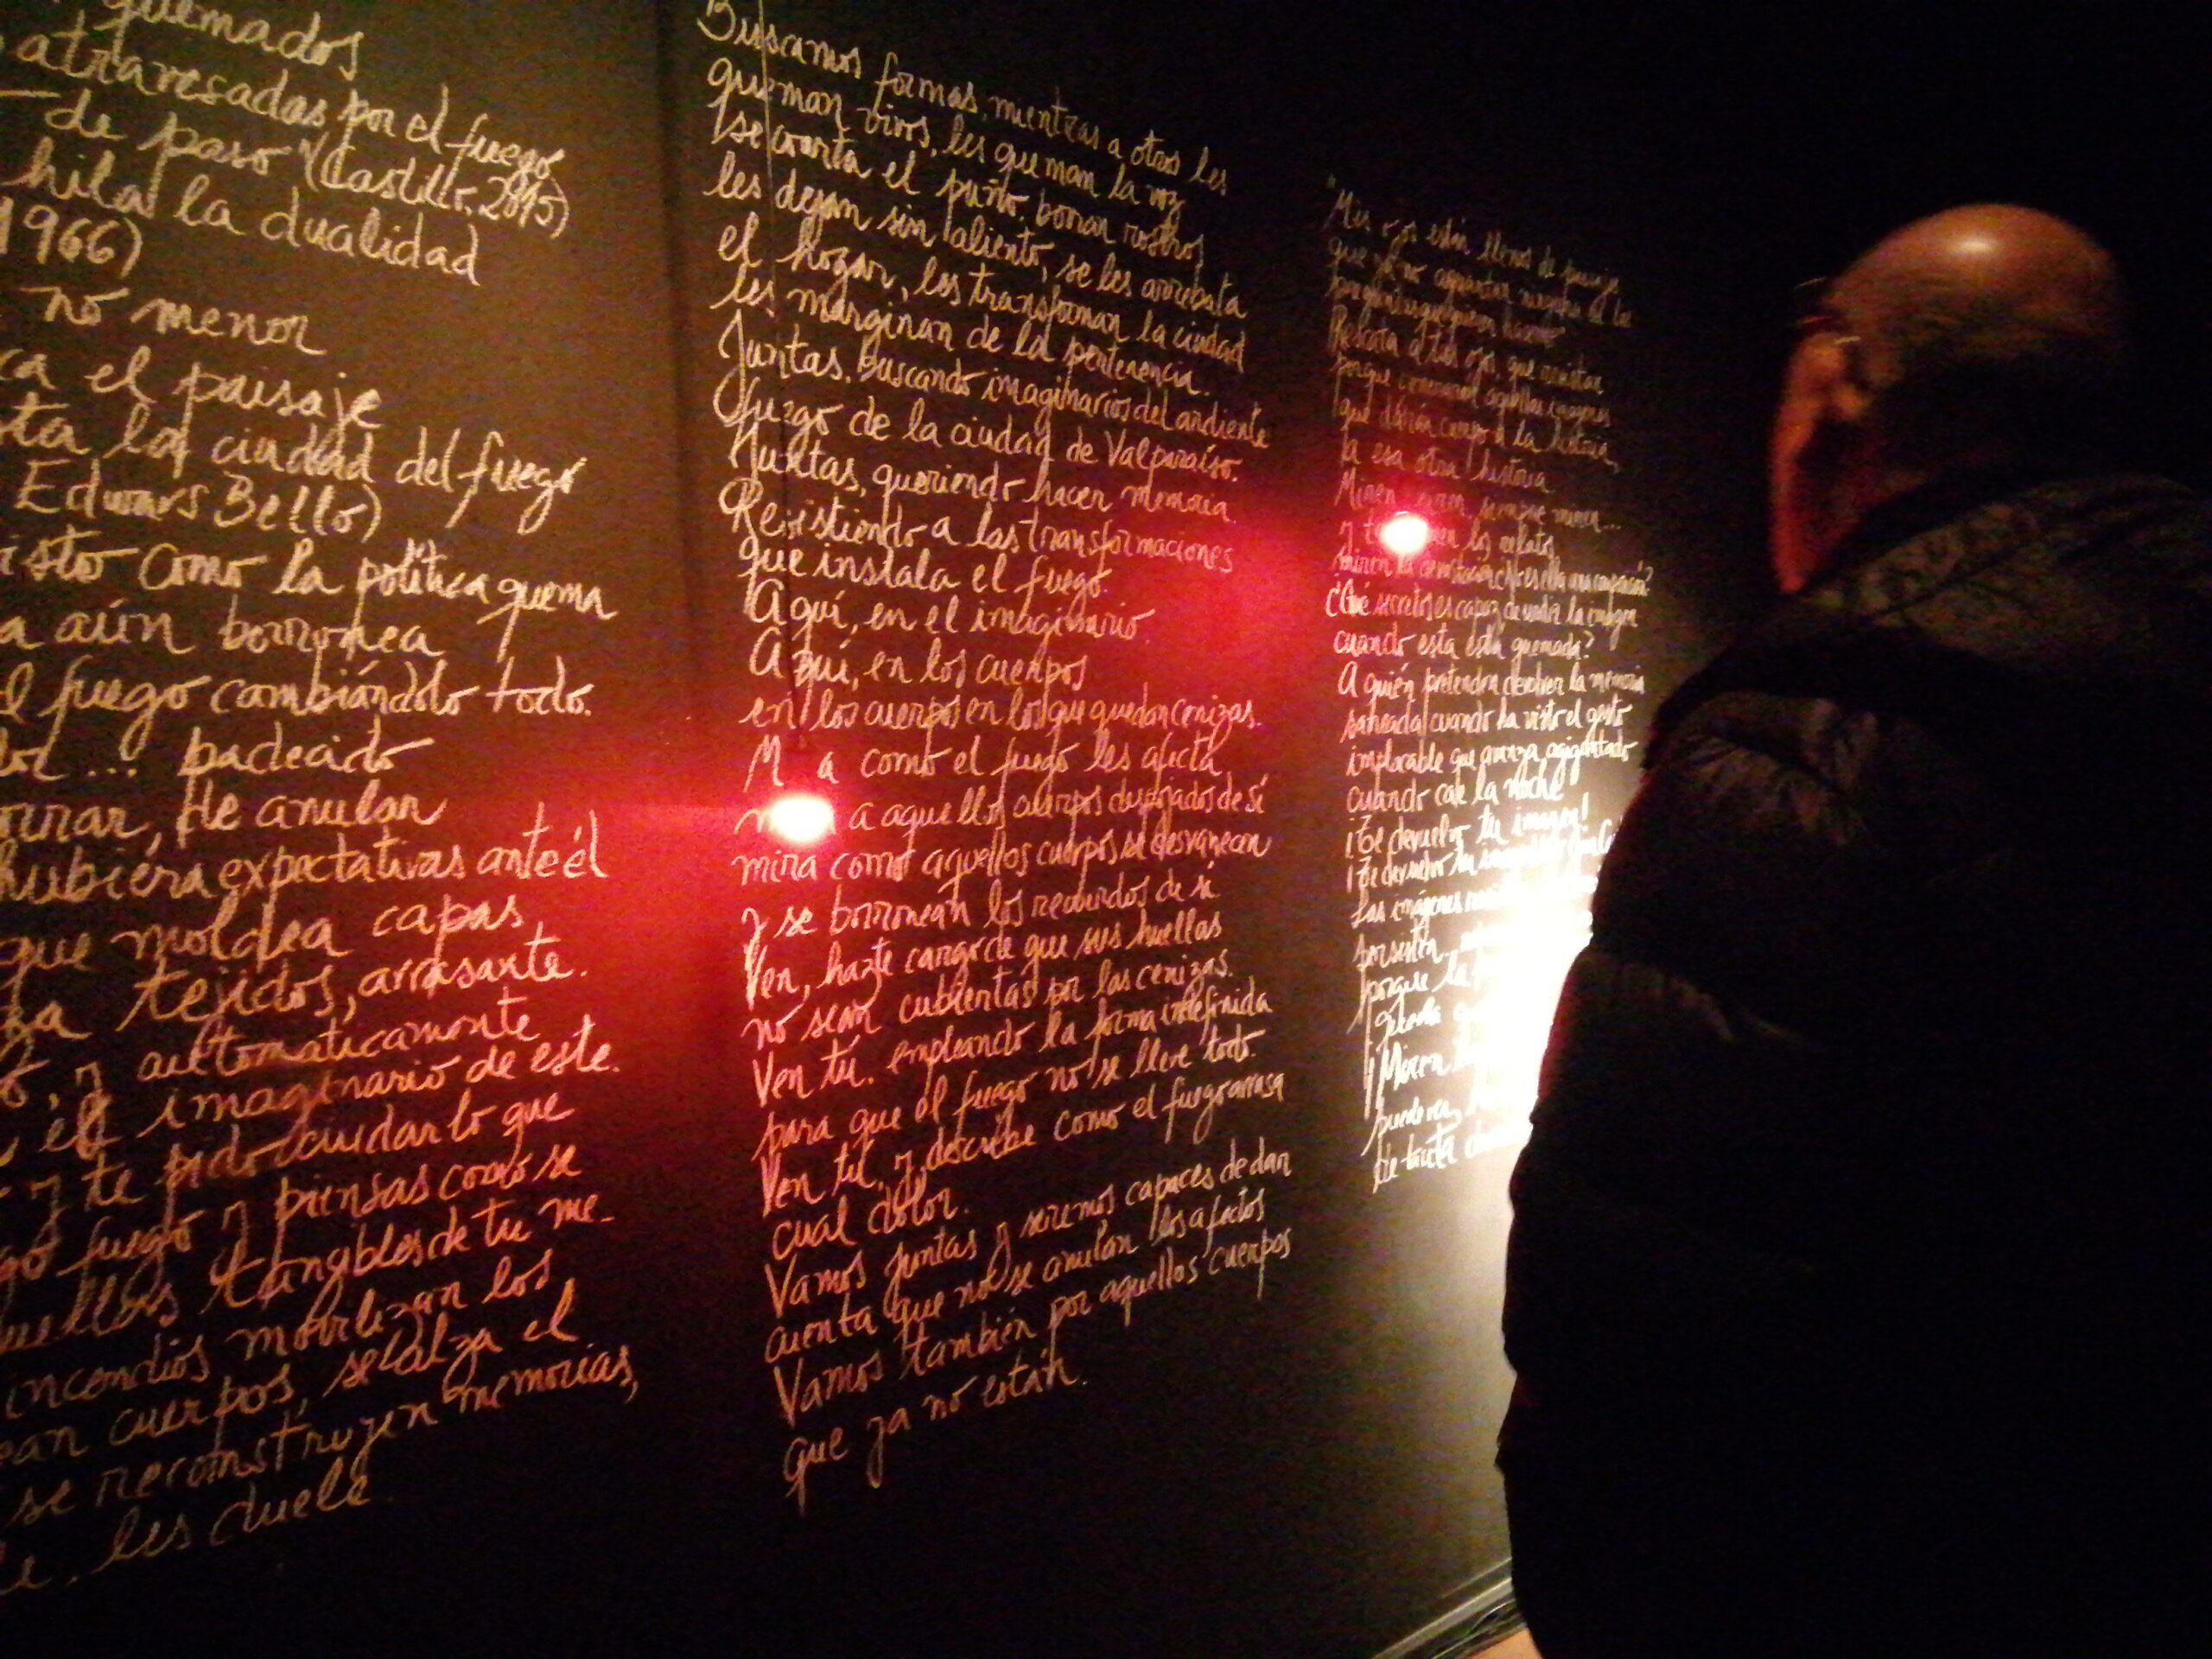 quemados
atravesadas por el fuego
de paso" (Castillo, 2015)
hila la dualidad
1966)
no menor
ca el paisaje
sta la ciudad del fuego
Edwars Bello)
isto como la política quema
a aún borronea
l fuego cambiándolo todo.
... padecido
orrar, de anular
hubiera expectativas ante él
que moldea capas,
za tejidos, arrasante.
, y automaticamente
el imaginario de este.
y te pido cuidar lo que
go fuego y piensas como se
uellas tangibles de tu me-
incendios movilizan los
ean cuerpos, se alza el
se reconstruyen memorias,
, les duele
Buscamos formas, mientras a otros les
queman vivos, les queman la voz
se coarta el puño, borran rostros
les dejan sin aliento, se les arrebata
el hogar, les transforman la ciudad
les marginan de la pertenencia.
Juntas, buscando imaginarios del ardiente
fuego de la ciudad de Valparaíso.
Juntas, queriendo hacer memoria.
Resistiendo a las transformaciones
que instala el fuego.
Aquí, en el imaginario.
Aquí, en los cuerpos
en los cuerpos en los que quedan cenizas.
M a como el fuego les afecta
a aquellos cuerpos despojados de sí
mira como aquellos cuerpos se desvanecen
y se borronean los recuerdos de sí
Ven, hazte cargo de que sus huellas
no sean cubiertas por las cenizas.
Ven tú, empleando la forma indefinida
para que el fuego no se lleve todo.
Ven tú, y describe como el fuego arrasa
cual dolor.
Vamos juntas y seremos capaces de dar
cuenta que no se anulan los afectos
Vamos también por aquellos cuerpos
que ya no están.
"Mis ojos están llenos de paisaje
que ya no aguantan ninguna de las
Rescata a tus ojos, que resistan,
porque conservan aquellas imágenes
que darán cuerpo a la historia,
a esa otra historia
Miren, miren, siempre miren...
y los relatos,
miren la
¿Qué secretos es capaz de vadir la imagen
cuando esta está quemada?
A quién pretenden devolver la memoria
saneada, cuando ha visto el gesto
implacable que avanza, agigantado
cuando cae la noche
¡Te devuelvo tu imagen!
¡Te devuelvo tu
Las imágenes
persisten
porque la
queda
¡Miren
pueden
de tanta